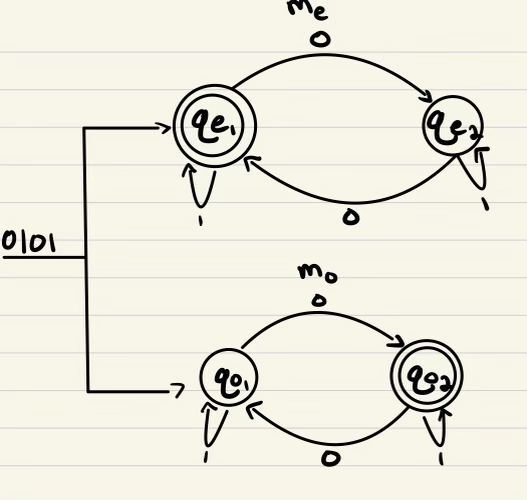 me
0
qe1
qe2
1
0
1
0101
mo
0
qo1
qo2
1
0
1